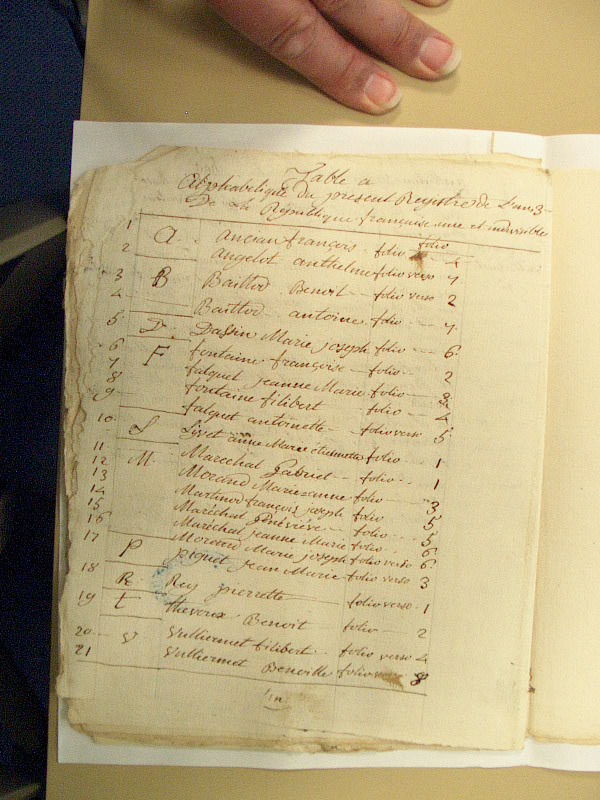 Table a
Alphabetique du present Registre de L'an 3
De La Republique française une et indivisible
folio
1 A. ancian françois folio
2 angelot anthelme folio verso 7
3 B Baillod Benoit folio verso 2
4 Baillod antoine folio 7
5 D. Dassin Marie joseph folio 6
6 F fontaine françoise folio 2
7 falquet jeanne Marie folio 3
8 fontaine filibert folio 4
9 falquet antoinette folio verso 5
10 L Livet anne Marie folio 1
11 M. Maréchal Gabriel folio 1
12 Morand Marie anne folio 3
13 Martinod françois joseph folio 5
14 Maréchal Géneviéve folio 5
15 Maréchal jeanne Marie folio 6
16 Morand Marie joseph folio verso 6
17 P piquet jean Marie folio verso 3
18 R. Rey pierrette folio verso 1
19 t thevoux Benoit folio 2
20 V Vulliermet filibert folio verso 4
21 Vulliermet Benoitte folio 8
fin